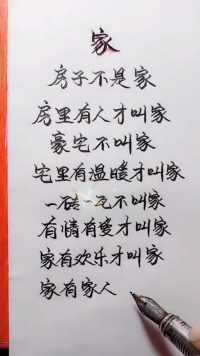 家
房子不是家
房里有人才叫家
豪宅不叫家
宅里有温暖才叫家
一砖一瓦不叫家
有情有爱才叫家
家有欢乐才叫家
家有家人